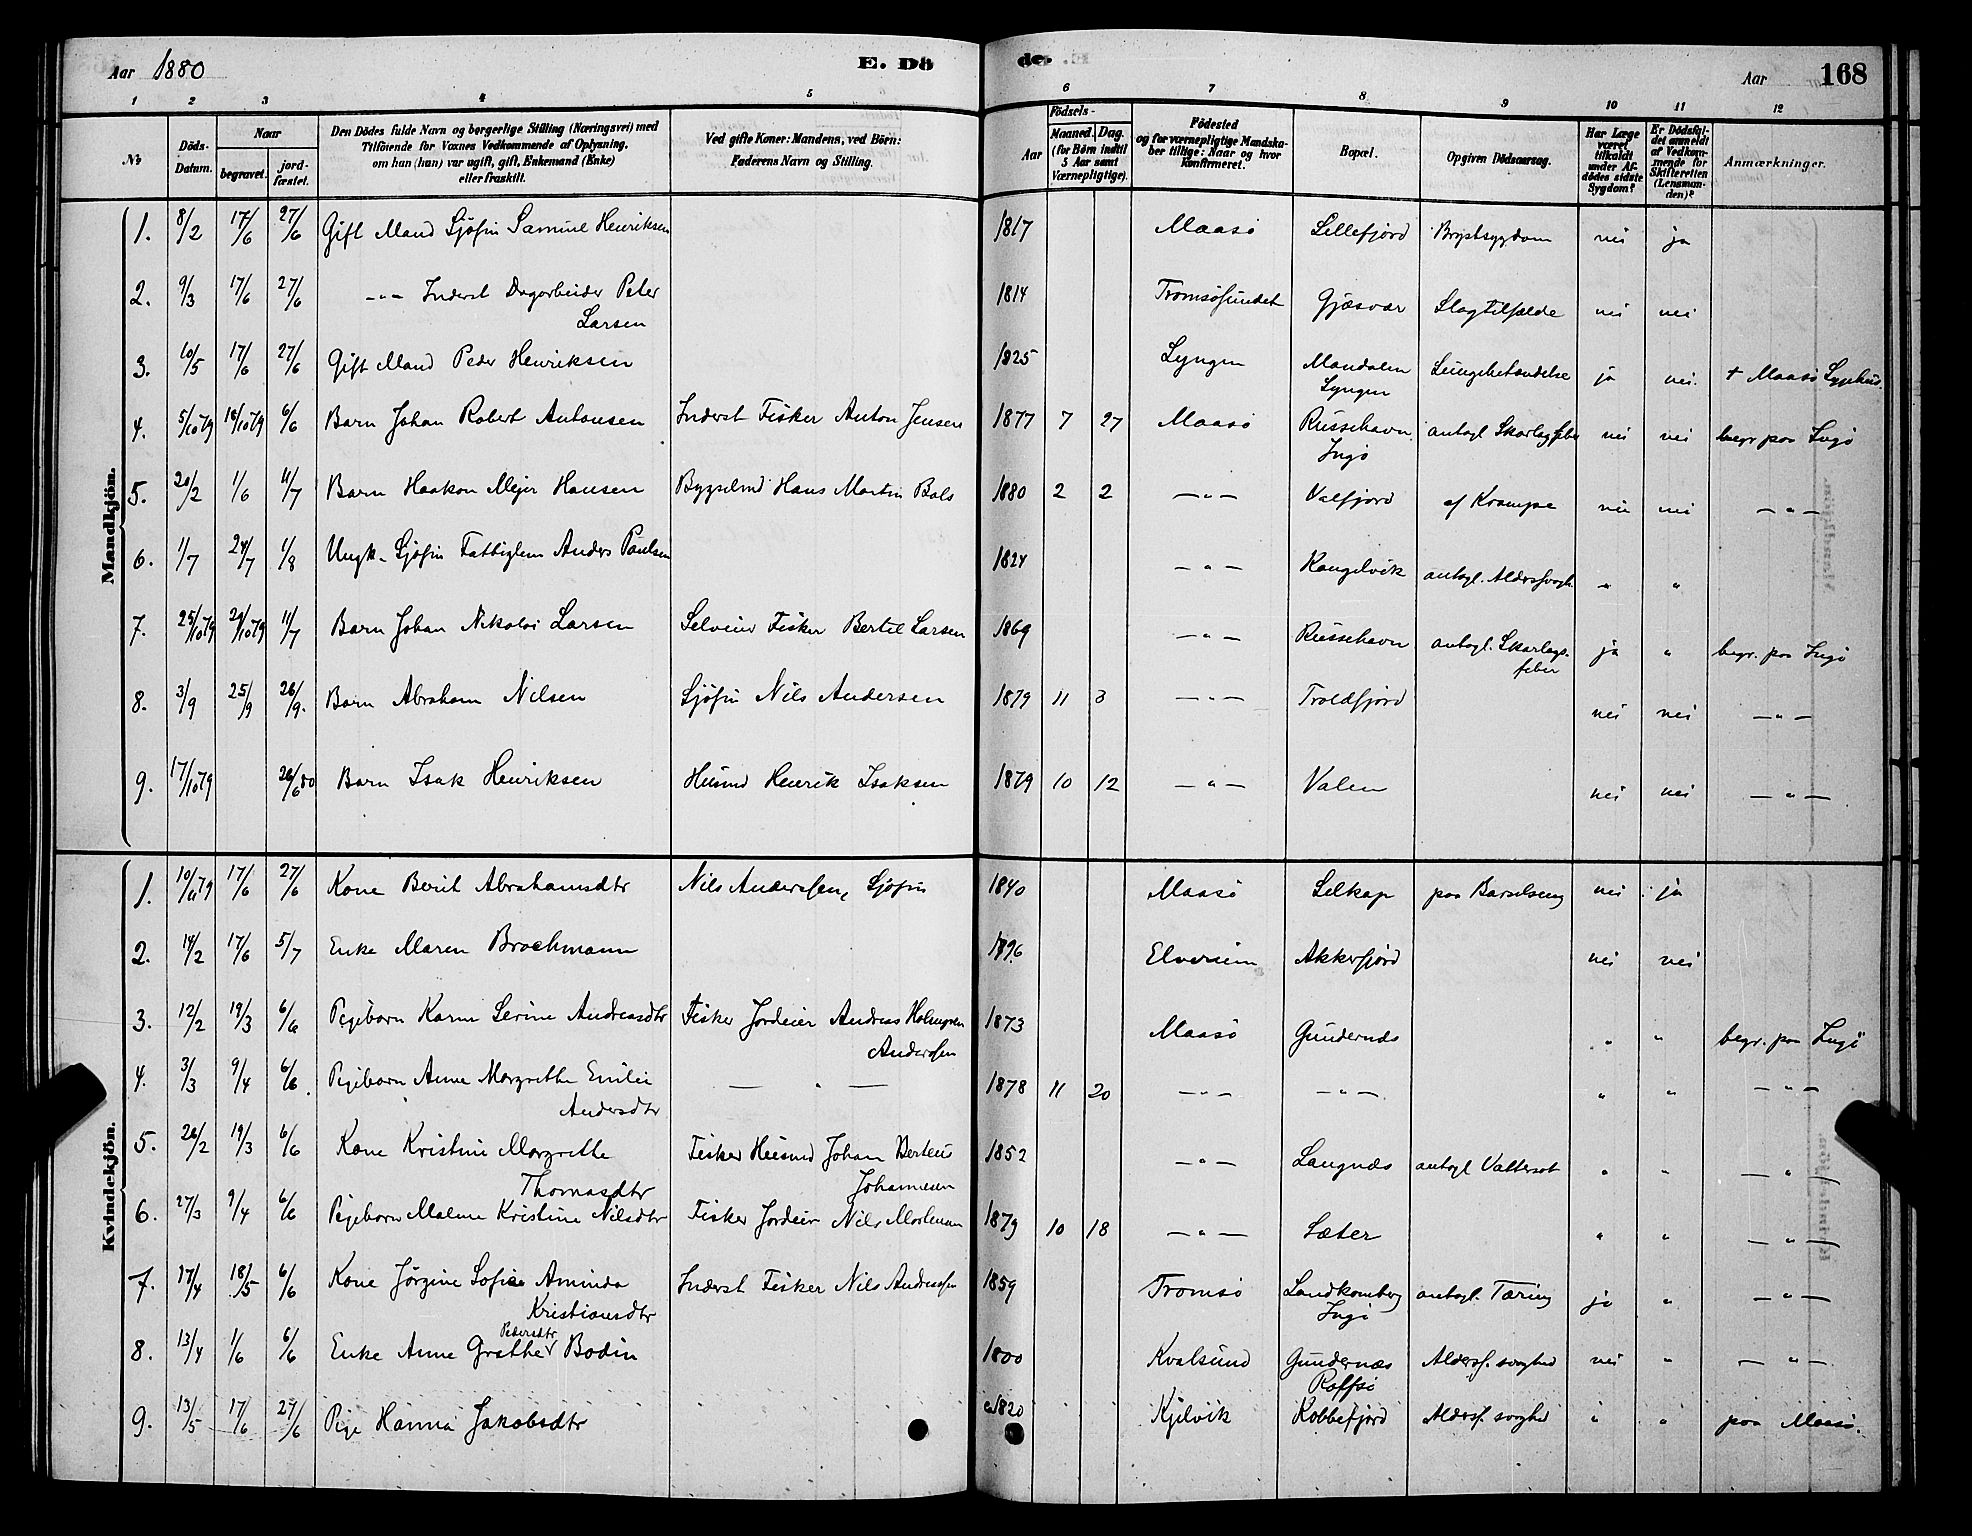 Aar 1880 E. Dö
de. Aar 168
1 2 3 4 5 6 7 8 9 10 11 12
No Döds-Datum. Naar begravet. jord-fæstet. Den Dödes fulde Navn og borgerlige Stilling (Næringsvei) med Tilföiende for Voxnes Vedkommende af Oplysning, om han (hun) var ugift, gift, Enkemand (Enke) eller fraskilt. Ved gifte Koner: Mandens, ved Börn: Faderens Navn og Stilling. Födsels- Aar Maaned. Dag. (for Børn indtil 5 Aar samt Værnepligtige). Födested og for værnepligtige Mandskaber tillige: Naar og hvor konfirmeret. Bopæl. Opgiven Dödsaarsag. Har Læge været tilkaldt under Afdödes sidste Sygdom? Er Dödsfaldet anmeldt af Vedkommende for Skifteretten (Lensmanden)? Anmærkninger.
Mandkjön.
1. 8/2 17/6 27/6 Gift Mand Sjöfin Samuel Henriksen 1817 Maasö Lillefjord Brystsygdom nei ja
2. 9/3 17/6 27/6 -"- Inderst Dagarbeider Peter 1814 Tromsösundet Gjæsvær Slagtilfælde nei nei
Larsen
3. 10/5 17/6 27/6 Gift Mand Peder Henriksen 1825 Lyngen Mandalen Lungebetændelse ja nei. + Maasö Sygehus.
Lyngen
4. 5/10 79 18/10 79 6/6 Barn Johan Robert Antonsen Inderst Fisker Anton Jensen 1877 7 27 Maasö Russehavn antagl Skarlagsfeber nei nei begr paa Ingö
Ingö
5. 20/2 1/6 11/7 Barn Haakon Mejer Hansen Bygselmd Hans Martin Bals 1880 2 2 -"- Valfjord af Krampe nei nei -"-
6. 1/7 24/7 1/8 Ungk. Sjöfin Fattiglem Anders Paulsen 1824 -"- Kangelvik antagl. Alderssvagh. " "
7. 25/10 79 29/10 79 11/7 Barn Johan Nikolai Larsen Selveier Fisker Bertel Larsen 1869 -"- Russehavn antagl. Skarlags- ja " begr. paa Ingö
feber
8. 3/9 25/9 26/9. Barn Abraham Nilsen Sjöfin Nils Andersen 1879 11 3 -"- Troldfjord nei nei -"-
9. 17/10 79 26/6 80 Barn Isak Henriksen Husmd Henrik Isaksen 1879 10 12 -"- Valen nei nei -"-
Kvindekjön.
1. 10/6 79 17/6 27/6 Kone Berit Abrahamsdtr Nils Anderssen, Sjöfin 1840 Maasö Selkap paa Barselseng nei ja
2. 14/2 17/6 5/7 Enke Maren Brochmann Elverum Akkerfjord nei nei
3. 12/2 19/3 6/6 Pigebarn Karen Serine Andreasdtr Fisker Jordeier Andreas Holmgren 1873 Maasö Gundernæs " " begr. paa Ingö
Anderssen
4. 3/3 9/4 6/6. Pigebarn Anne Margrethe Emilie — " — 1878 11 20 -"- -"- " " -"-
Andersdtr
5. 26/2 19/3 6/6 Kone Kristine Margrethe Fisker Husmd Johan Berteus 1852 -"- Langnæs antagl Vattersot " " -"-
Thomasdtr Johannesen
6. 27/3 9/4 6/6 Pigebarn Malene Kristine Nilsdtr Fisker Jordeier Nils Mortensen 1879 10 18 -"- Sæter " " -"-
7. 17/4 18/5 6/6 Kone Jörgine Sofie Aminda Inderst Fisker Nils Andreassen 1859 Tromsö Sandkamberg antagl. Tæring ja " -"-
Kristiansdtr Ingö
8. 13/4 1/6 6/6 Enke Anne Grethe Pedersdtr Bodin 1800 Kvalsund Gundernæs Aldersf. svaghed nei " -"-
Rolfsö
9. 13/5 17/6 27/6 Pige Hanna Jakobsdtr c. 1820 Kjelvik Kobbefjord Aldersf. svaghed " " paa Maasö.